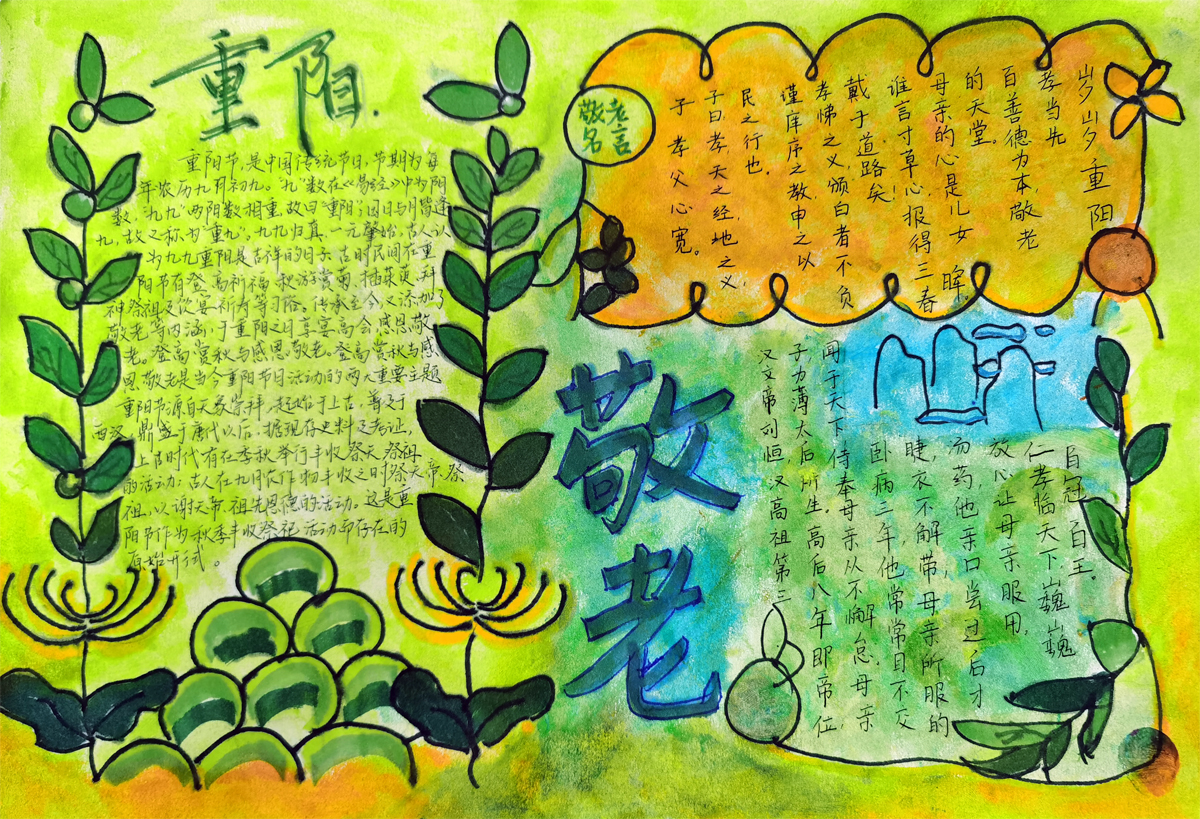 重阳.
重阳节,是中国传统节日,节期为每
年农历九月初九。"九"数在《易经》中为阳
数,"九九"两阳数相重,故曰"重阳";因日与月皆逢
九,故又称为"重九"。九九归真,一元肇始,古人认
为九九重阳是吉祥的日子。古时民间在重
阳节有登高祈福、秋游赏菊、插茱萸、拜
神祭祖及饮宴祈寿等习俗。传承至今,又添加了
敬老等内涵,于重阳之日享宴高会,感恩敬
老。登高赏秋与感恩敬老。登高赏秋与感
恩敬老是当今重阳节日活动的两大重要主题
重阳节源自天象崇拜,起始于上古,普及于
西汉,鼎盛于唐代以后。据现存史料及考证,
上古时代有在季秋举行丰收祭天、祭祖
的活动;古人在九月农作物丰收之时祭天帝、祭
祖,以谢天帝、祖先恩德的活动。这是重
阳节作为秋季丰收祭祀活动而存在的
原始形式。
敬老
名言
子孝父心宽。
子曰孝,天之经,地之义,
民之行也.
谨庠序之教,申之以
孝悌之义,颁白者不负
戴于道路矣!
谁言寸草心,报得三春
晖.
母亲的心是儿女
的天堂
百善德为本,敬老
孝当先
岁岁重阳
敬老
汉文帝刘恒,汉高祖第三
子为薄太后所生。高后八年即帝位,
闻于天下,侍奉母亲从不懈怠.母亲
卧病三年,他常常目不交
睫,衣不解带,母亲所服的
汤药他亲口尝过后才
放心让母亲服用,
仁孝临天下,巍巍
自冠百王.